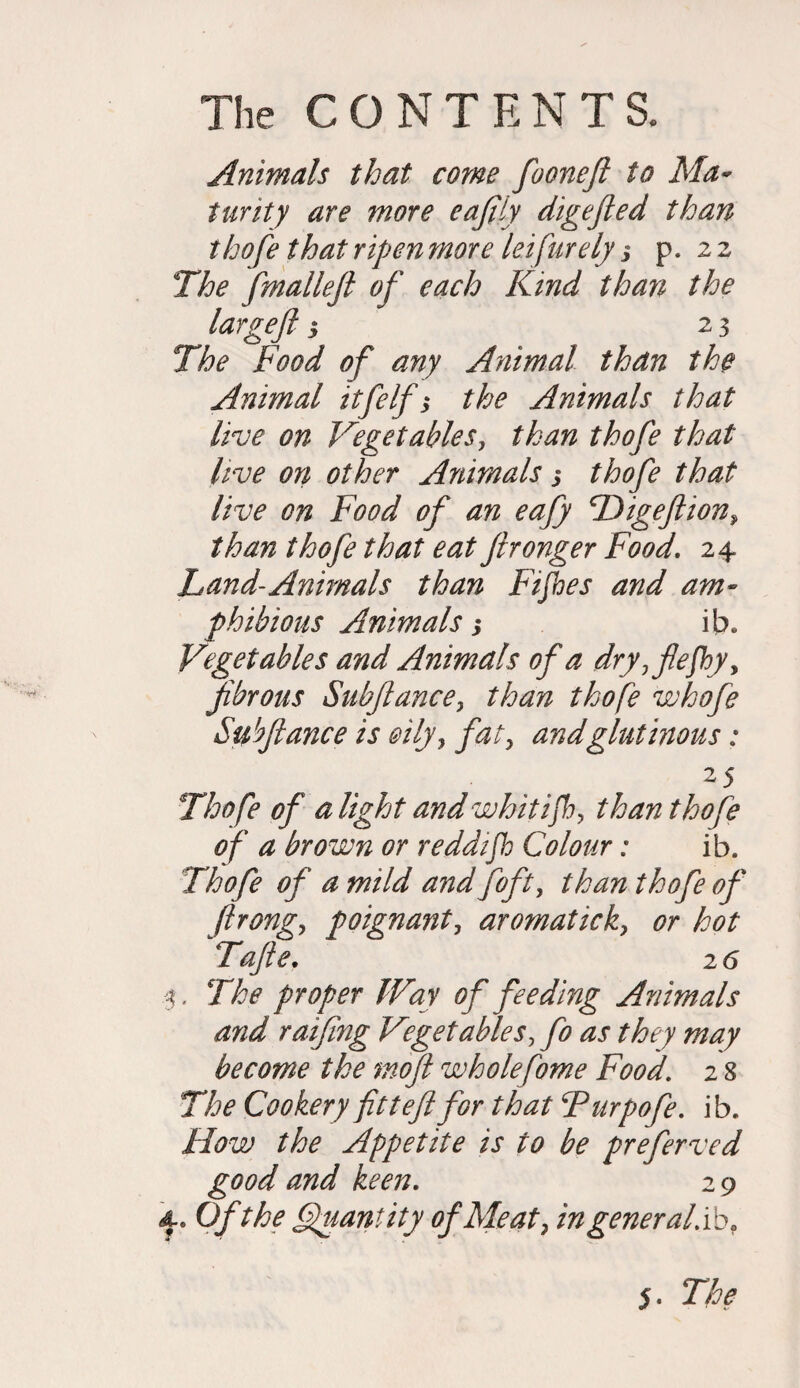 The CONTENTS.
Animals that come ſooneſt to Ma-
turity are more eaſily digeſted than
thoſe that ripen more leiſurely; p. 22
The ſmalleſt of each Kind than the
largeſt; 23
The Food of any Animal than the
Animal itſelf; the Animals that
live on Vegetables, than thoſe that
live on other Animals; thoſe that
live on Food of an eaſy Digeſtion,
than thoſe that eat ſtronger Food. 24
Land-Animals than Fiſhes and am-
phibious Animals; ib.
Vegetables and Animals of a dry, fleſhy,
fibrous Subſtance, than thoſe whoſe
Subſtance is oily, fat, and glutinous:
25
Thoſe of a light and whitiſh, than thoſe
of a brown or reddiſh Colour: ib.
Thoſe of a mild and ſoft, than thoſe of
ſtrong, poignant, aromatick, or hot
Taſte. 26
3. The proper Way of feeding Animals
and raiſing Vegetables, ſo as they may
become the moſt wholeſome Food. 28
The Cookery fitteſt for that Purpoſe. ib.
How the Appetite is to be preſerved
good and keen. 29
4. Of the Quantity of Meat, in general. ib.
5. The